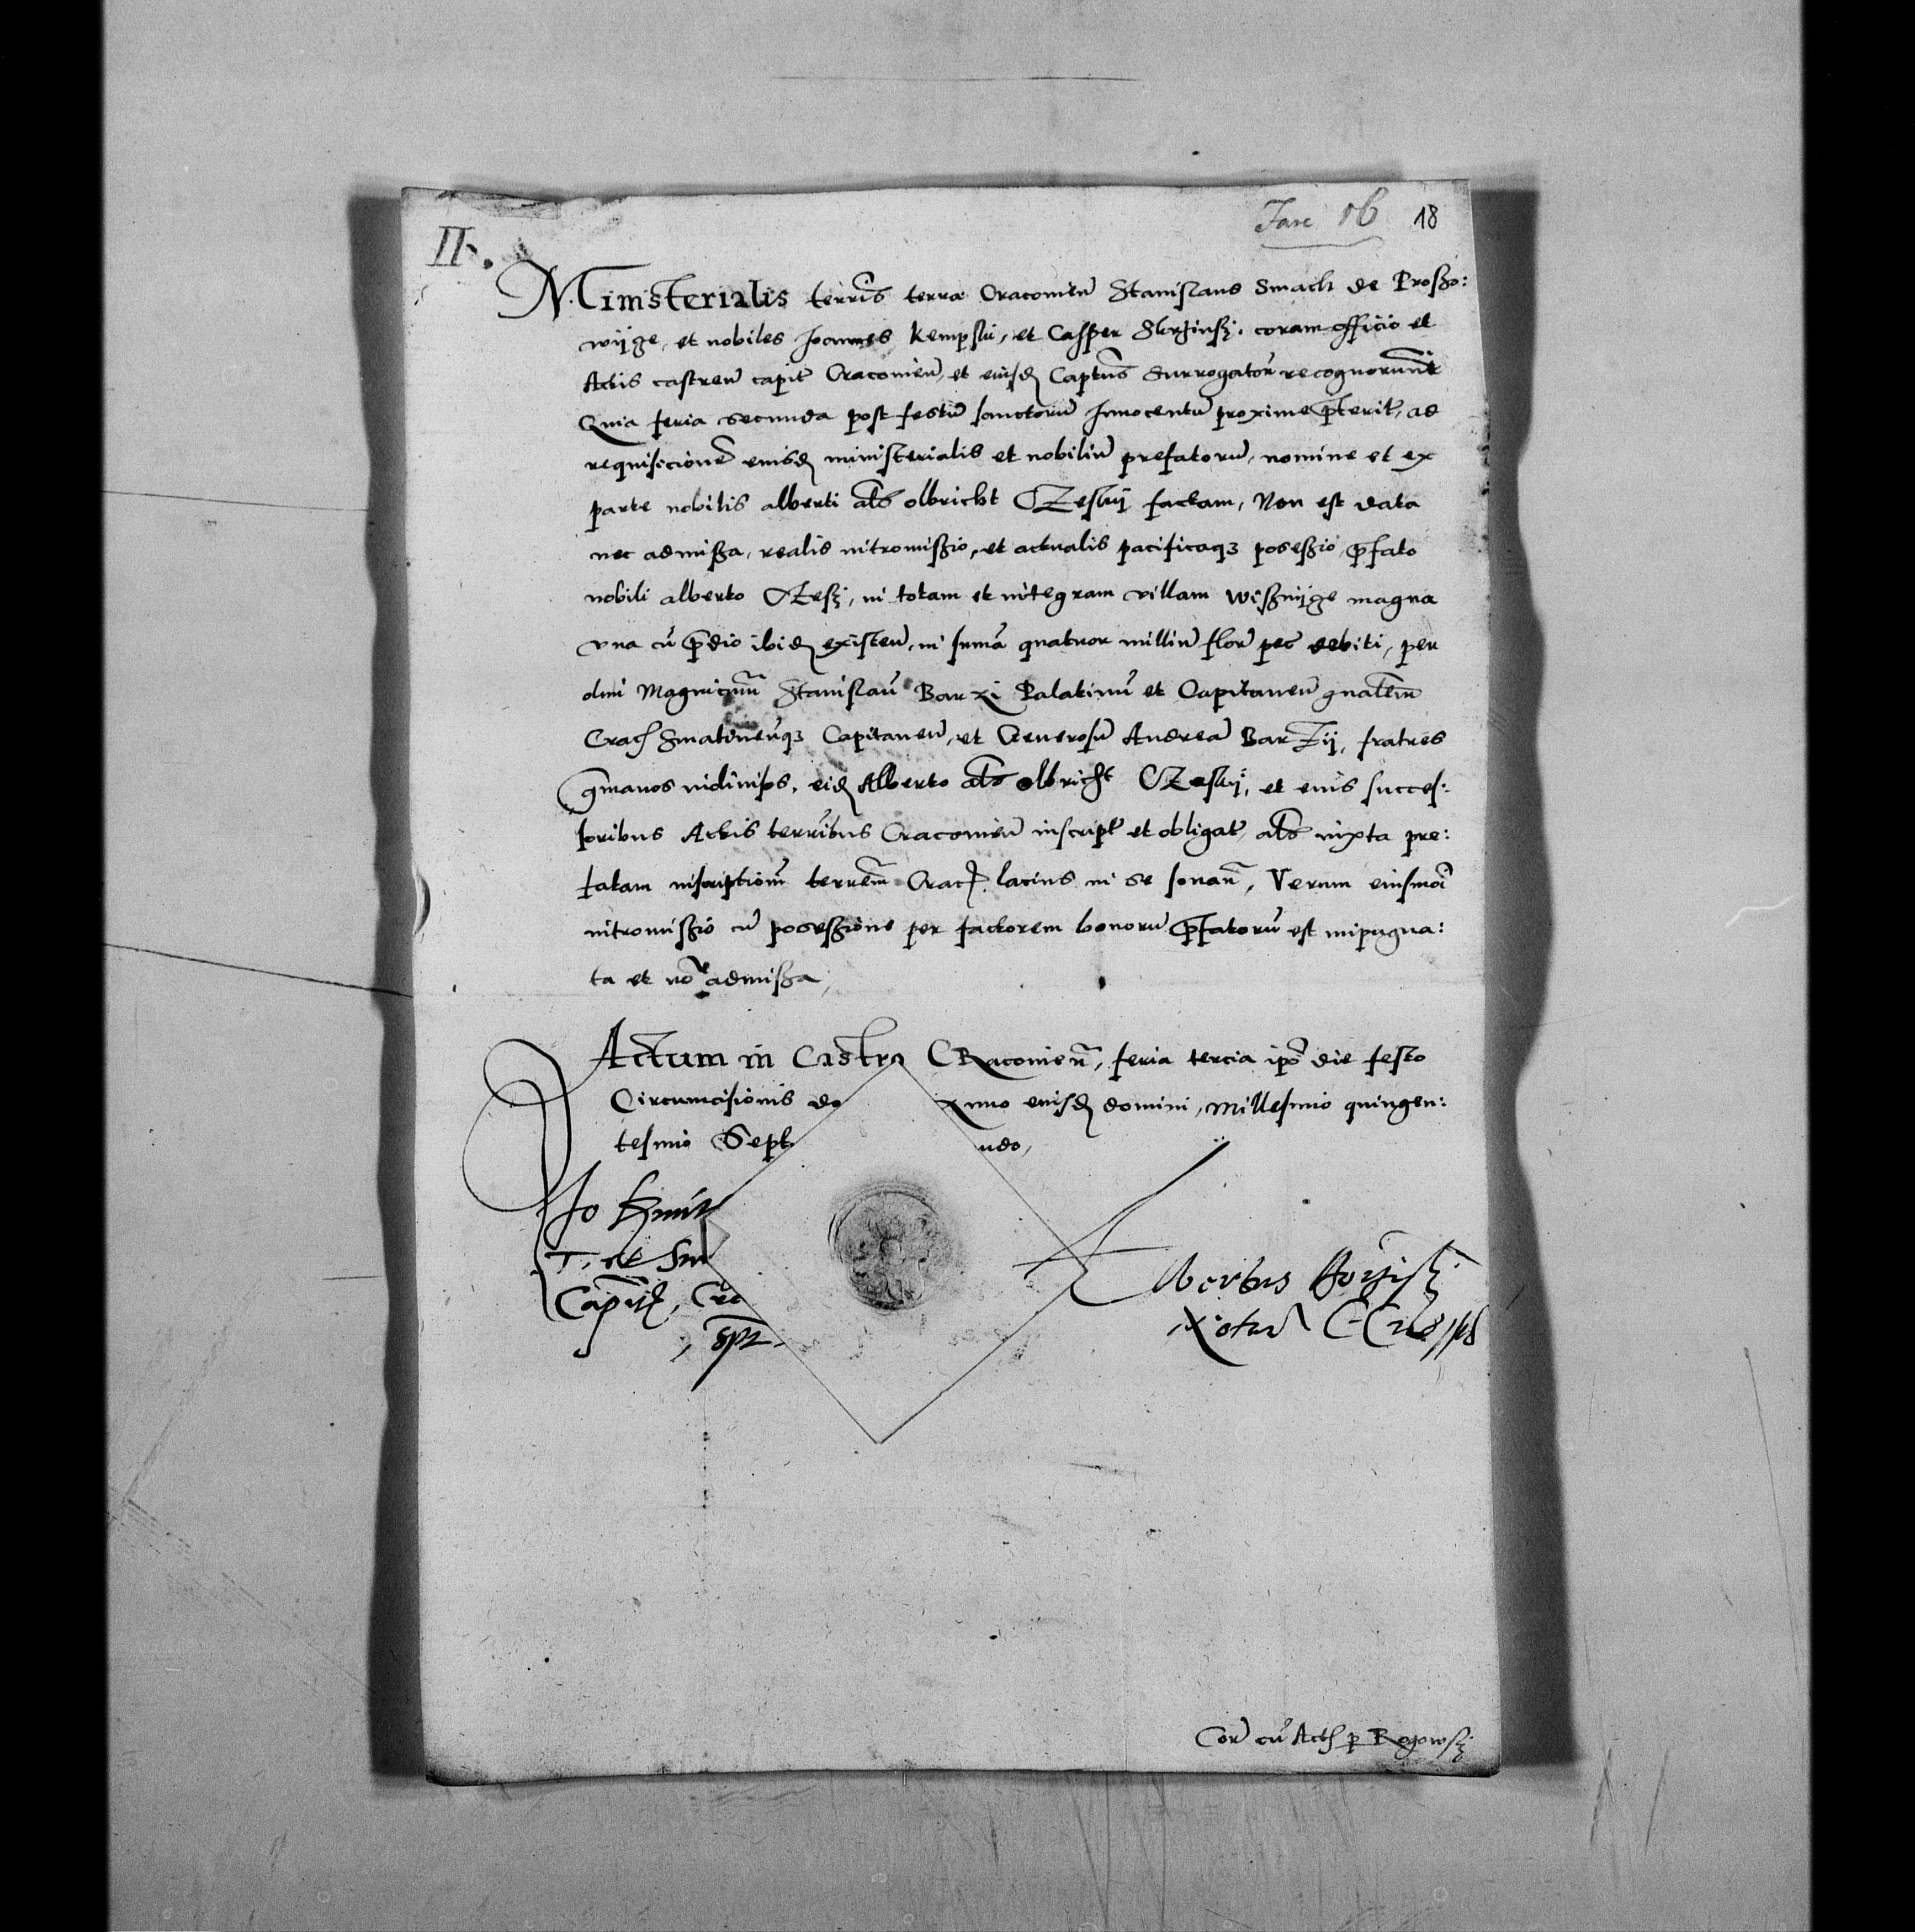 Fasc 16 18
II.
Ministerialis terr̃is terræ Cracovień Stanislaus Smach de Proßo:
wijcze, et nobiles Joannes Kempski, et Casper, coram officio et
Actis castreñ capit̃ Cracovieñ, et eiusd Captũs Surrogator̃ recognorunt
Quia feria secunda post festũ sanctorũ Innocentũ proxime p̃terit̃, ad
requisicionẽ eiusd ministerialis et nobiliũ prefatorũ, nomine et ex
parte nobilis alberti als̃ olbricht CZeskij factam, Non est data
nec admißa, realis intromißio, et actualis pacificaq3 poseßio, p̃fato
nobili alberto CZeski, in totam et integram villam Wißnijcze magna
vna cũ p̃dio ibid existeñ, in sum̃a quatuor milliũ flor̃ pec̃ debiti, per
olim Magnicũm Stanislaũ Barzi Palatinũ et Capitaneũ gnalem̃
Crac Sniatineñq3 Capitaneũ, et Generosũ Andreã BarZij, fratres
g̃manos indivisos, eid Alberto als̃ olbricht CZeskij, et eius succes:
soribus Actis terr̃ibus Cracovieñ inscript̃ et obligat̃, als̃ iuxta pre:
fatam inscriptionem̃ terrem̃ Crac. lacius in se sonañ, Verum eiusmoi
intromißio cũ poseßione per factorem bonorũ p̃fatorũ est impugna:
ta et nõ admißa,
Actum in Castro CRacovieñ, feria tercia ipo die festo
Circumcisionis do Anno eiusd domini, Millesimo quingen:
tesimo Sept ndo,
Jo Kmit
T. et
Capit, Cra
spt
Albertus
Notar̃
Cor̃ cũ Actis p Rogowski